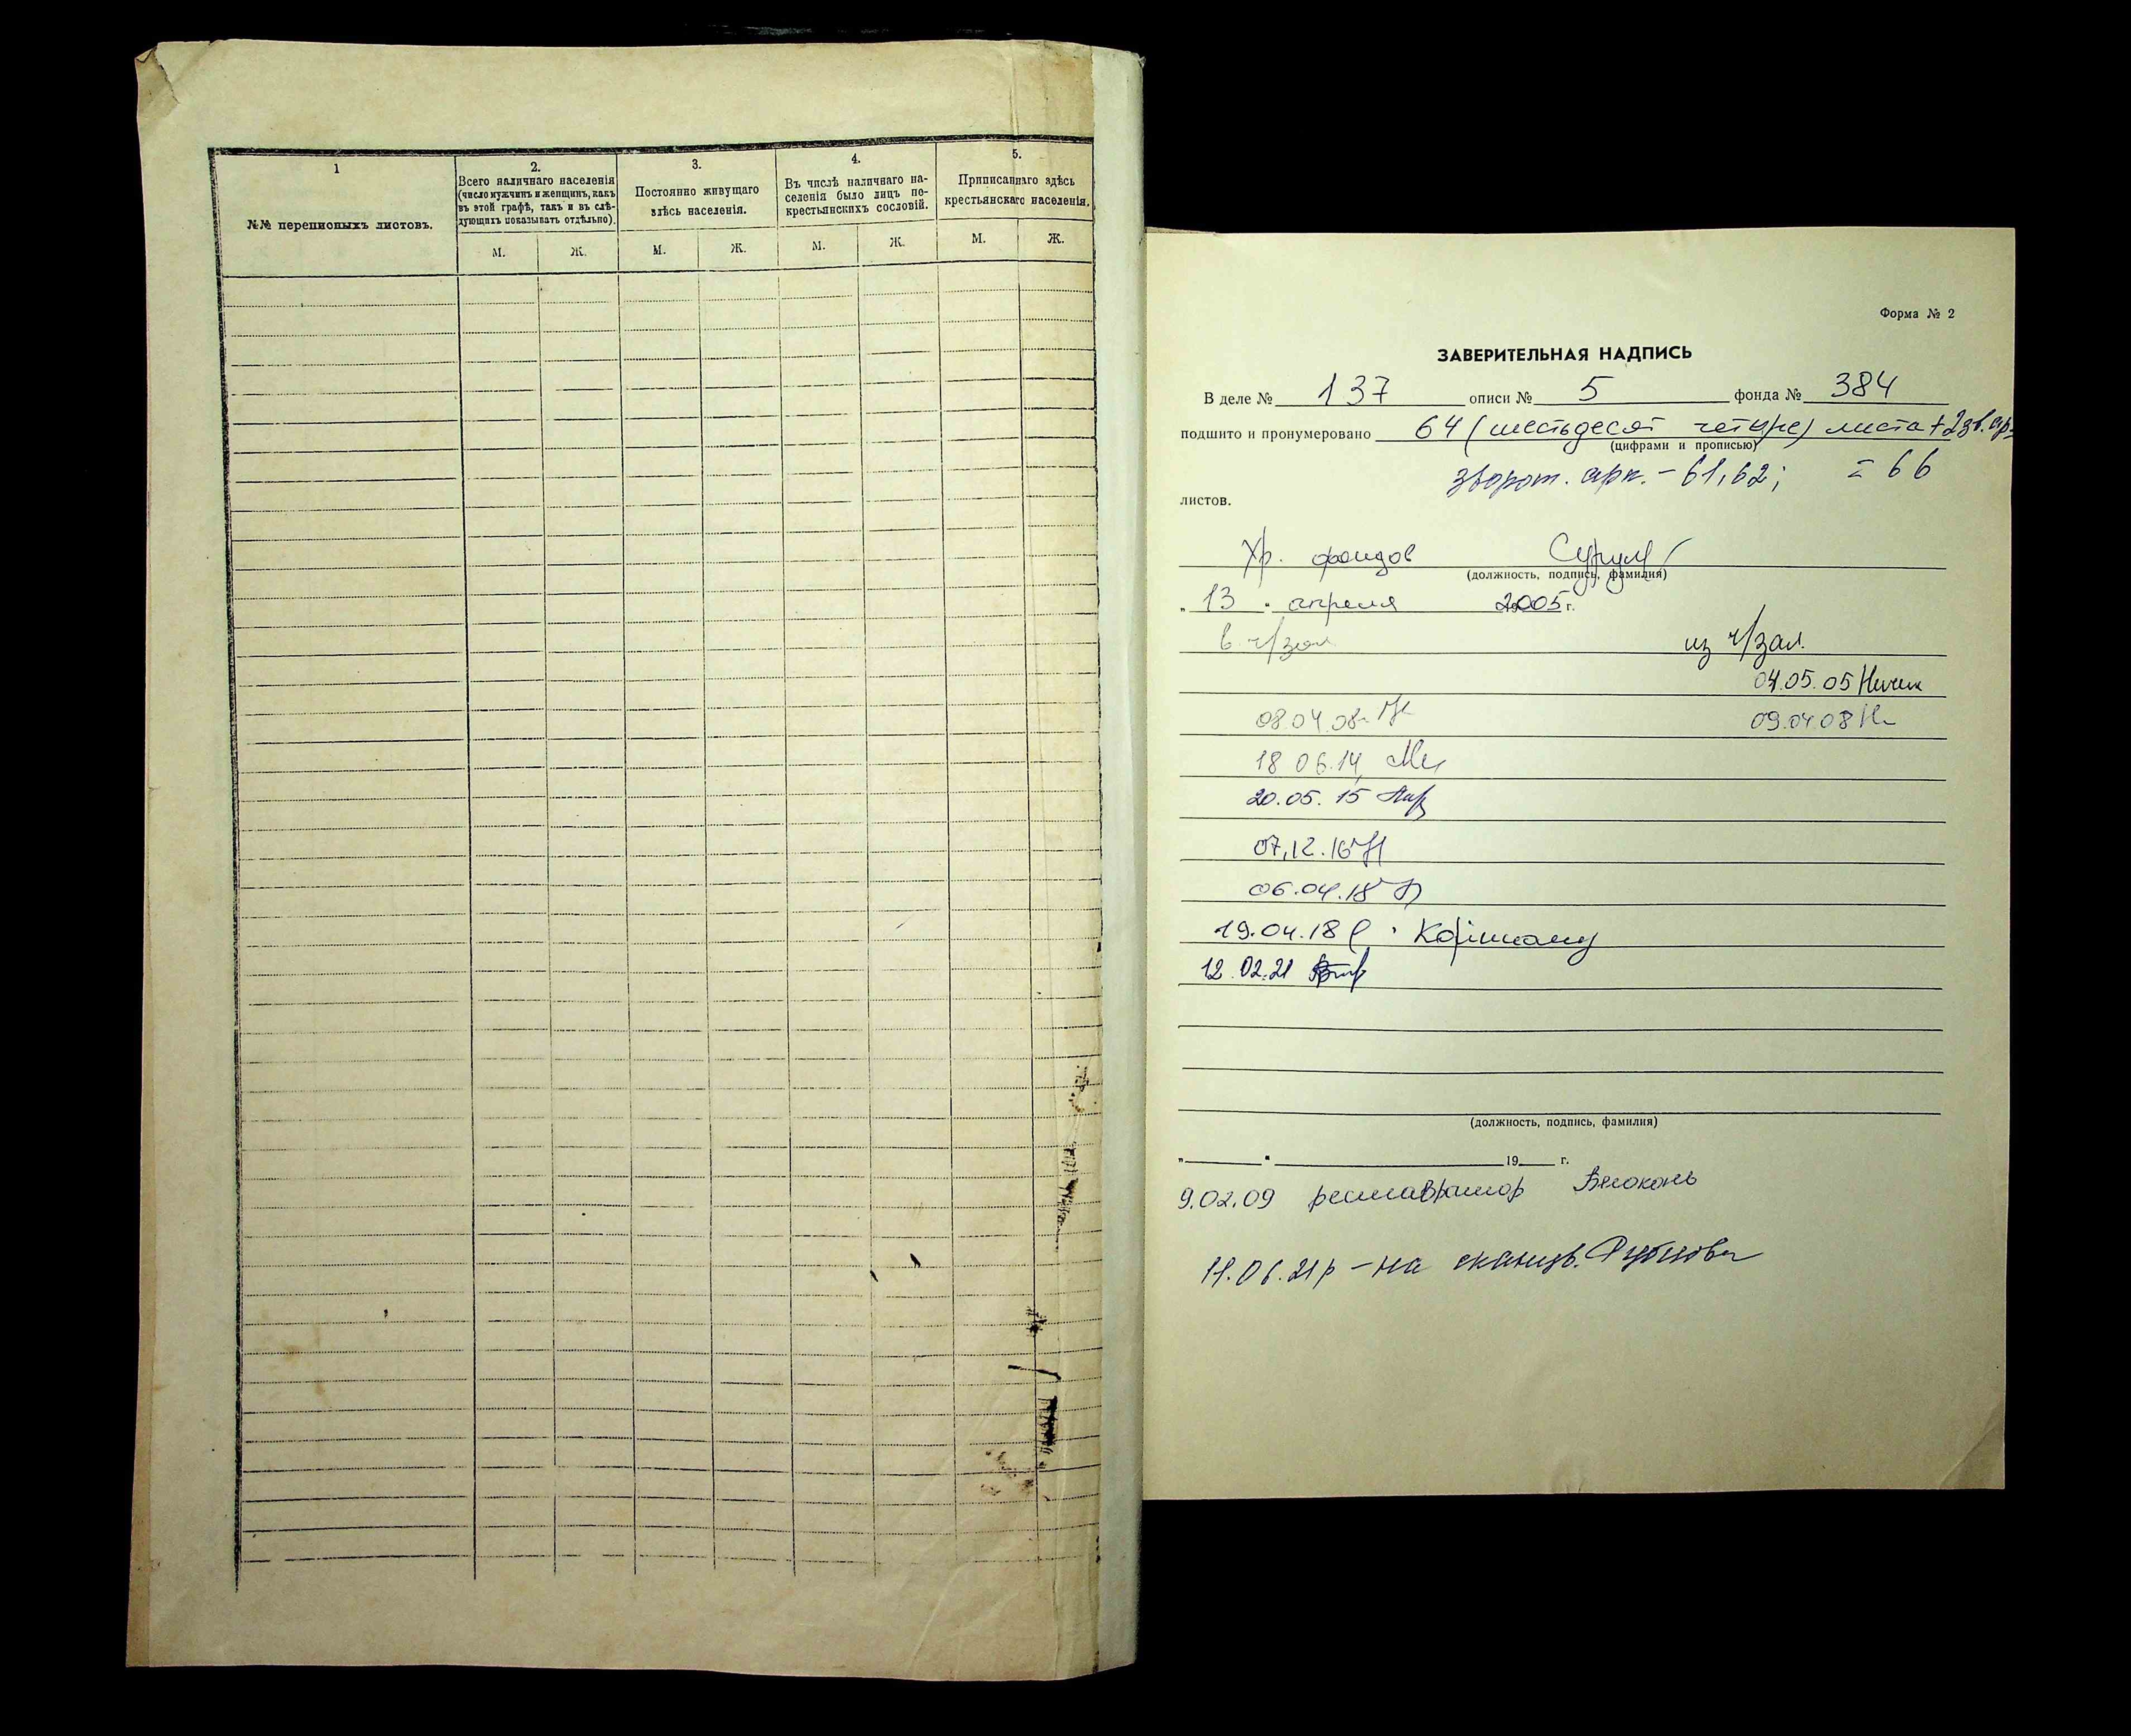 1
№№ переписныхъ листовъ.
2.
Всего наличнаго населенія
(число мужчинъ и женщинъ, какъ
въ этой графѣ, такъ и въ слѣ-
дующихъ показывать отдѣльно).
М. Ж.
3.
Постоянно живущаго
здѣсь населенія.
М. Ж.
4.
Въ числѣ наличнаго на-
селенія было лицъ не-
крестьянскихъ сословій.
М. Ж.
5.
Приписаннаго здѣсь
крестьянскаго населенія.
М. Ж.
Форма № 2
ЗАВЕРИТЕЛЬНАЯ НАДПИСЬ
В деле № 137 описи № 5 фонда № 384
подшито и пронумеровано 64 (шестьдесят четыре) листа + 2 зв. ар.
(цифрами и прописью)
зворот. арк. - 61, 62; = 66
листов.
Хр. фондов
(должность, подпись, фамилия)
„ 13 " апреля 2005 г.
в ч/зал из ч/зал.
04.05.05
08.04.08 09.04.08
18 06.14
20.05.15
07.12.16
06.04.18
19.04.18
12.02.21
(должность, подпись, фамилия)
„ " 19 г.
9.02.09 реставратор Белоконь
11.06.21р - на сканув. Рубцова